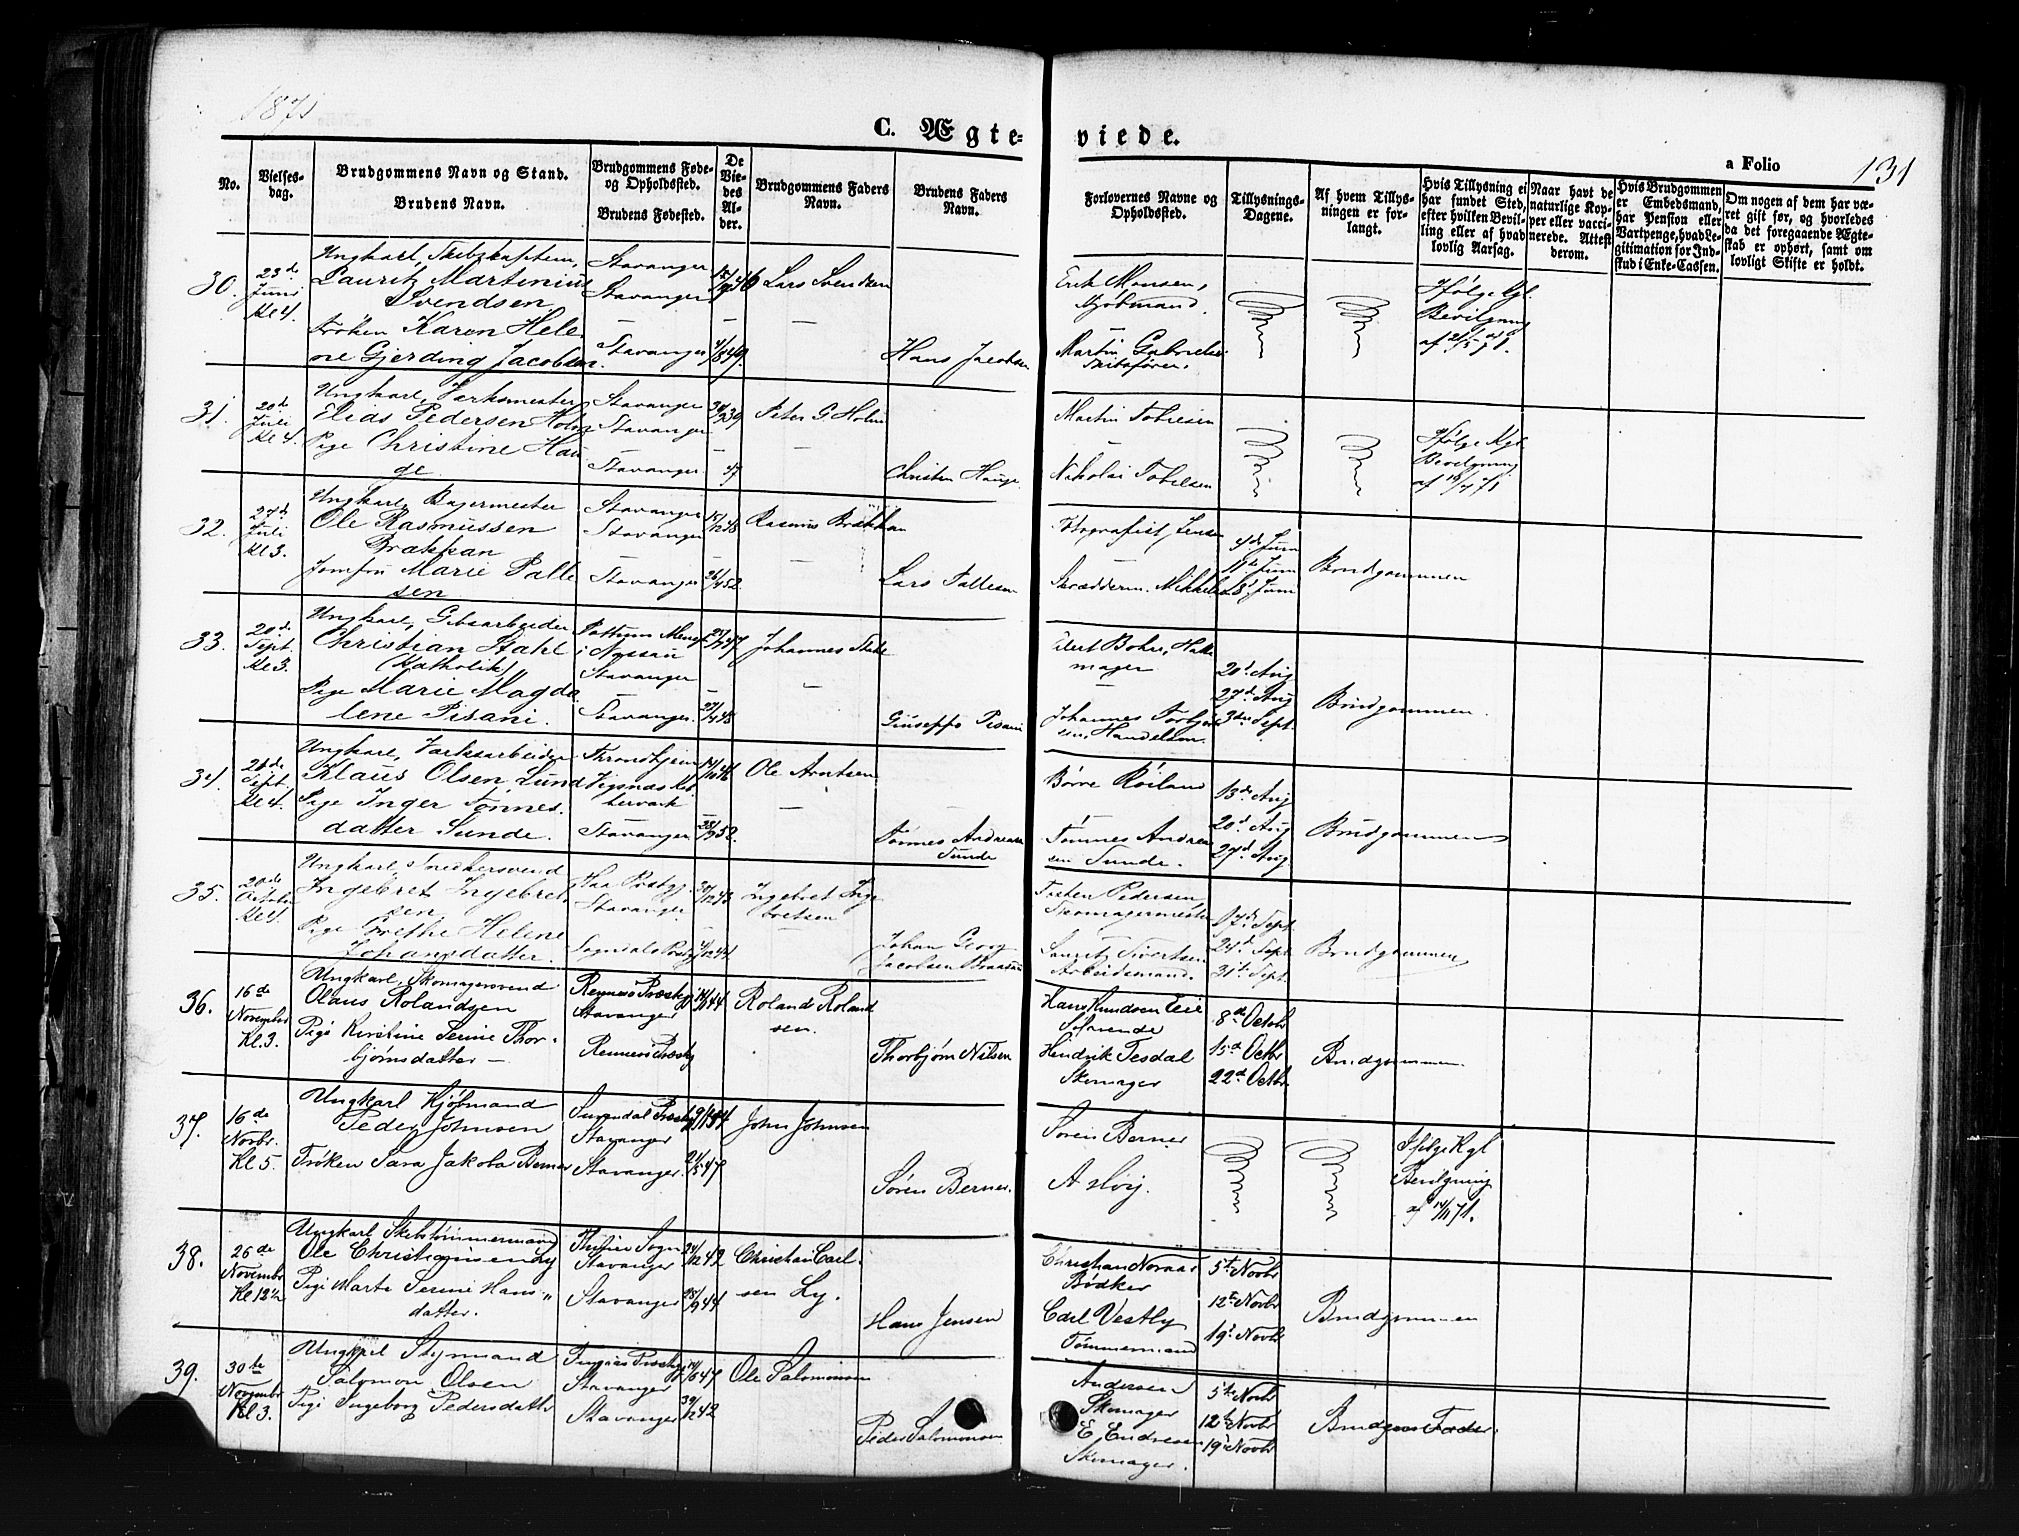 1871
C. Ægte- viede.
a Folio 131
No.
Vielses-
dag.
Brudgommens Navn og Stand.
Brudens Navn.
Brudgommens Føde-
og Opholdssted.
Brudens Fødested.
De
Vie-
des
Al-
der.
Brudgommens Faders
Navn.
Brudens Faders
Navn.
Forlovernes Navne og
Opholdssted.
Tillysnings-
Dagene.
Af hvem Tillys-
ningen er for-
langt.
Hvis Tillysning ei
har fundet Sted,
efter hvilken Bevil-
ling eller af hvad
lovlig Aarsag.
Naar havt de
naturlige Kop-
per eller vacci-
nerede. Attest
derom.
Hvis Brudgommen
er Embedsmand,
har Pension eller
Vartpenge, hvad Le-
gitimation for Ind-
skud i Enke-Cassen.
Om nogen af dem har væ-
ret gift før, og hvorledes
da det foregaaende Ægte-
skab er ophørt, samt om
lovligt Skifte er holdt.
30.
23de
Juni
Kl 4.
Ungkarl, Skibskaptein,
Lauritz Martinius
Svendsen
Frøken Karen Hele
ne Gjerding Jacobsen.
Stavanger
Stavanger
Stavanger
Lars Svendsen
Hans Jacobsen
Erik Monsen,
Kjøbmand.
Martin Gabrielse
Skibsfører.
Ifølge kgl.
Bevilgning
31.
20de
Juli
Kl 4.
Ungkarl, Værksmester
Elias Pedersen Holm
Pige Christine Hau
ge
Stavanger
Stavanger
Stavanger
Peter G. Holm
Christen Hauge.
Martin Tobiesen
Nikolai Tobiesen
Ifølge Kgl
Bevilgning
af 19/7 71
32.
27de
Juli
Kl 3.
Ungkarl, Bagermester
Ole Rasmussen
Brækkan
Jomfru Marie Palle
sen
Stavanger
Stavanger
Stavanger
26/4 52.
Rasmus Brækkan
Lars Pallesen
Fotografist Jensen
4de Juni
11te Juni
18d Juni
Brudgommen
33.
20de
Sept.
Kl 3.
Ungkarl, Gibsarbeider
Christian Stahl
(Katholik)
Pige Marie Magda
lene Pisani.
i Nassau
Stavanger
Stavanger.
Johannes Stahl
Giuseppe Pisani
Eilert Bohr, Hatte
mager
20d Aug
27d Aug
3die Sept.
Brudgommen.
34.
21de
Sept.
Kl 4.
Ungkarl, Værksarbeider
Klaus Olsen Lund
Pige Inger Tønnes
datter Sunde.
Throndhjem
Vigsnæs Kob
berværk
Stavanger
28/9 52.
Ole Arntsen
Tønnes Andreasen
Sunde
Børre Røiland
Tønnes Andrea
sen Sunde.
13de Aug
20d Aug
27d. Aug
Brudgommen
35.
20de
October
Kl 4.
Ungkarl, Snedkersvend
Ingebret Ingebret
sen
Pige Grethe Helene
Johansdatter.
Haa Præstgj.
Stavanger
Sogndals Præstg
Ingebret Inge
bretsen
Johan Georg
Jacobsen
Pedersen
Skomagermester
Lauritz Sivertsen
Arbeidsmand.
17de Sept
24d Sept
31te Sept.
Brudgommen
36.
16de
November
Kl. 3.
Ungkarl, Skomagersvend
Olaus Rolandsen
Pige Kirstine Serine Thor-
bjørnsdatter —
Rennesø Præstg
Stavanger
Rennesø Præstg
Roland Roland
sen.
Thorbjørn Nilsen
Hans Knudsen Eie
Hendrik Tesdal
Skomager
8de Octobr
15d. Octbr
22d. Octbr.
Brudgommen
37.
16de
Novbr.
Kl 5.
Ungkarl Kjøbmand
Peder Johnsen
Frøken Sara Jakoba Berner
Surendal Præstg
Stavanger
Stavanger.
John Johnsen
Søren Berner.
Søren Berner
Ifølge Kgl
Bevilgning
af 14/11 71.
38.
26de
Novembr
Kl 12½
Ungkarl Skibstømmermand
Ole Christiansen Ly
Pige Marte Serine Hans „
datter.
Stavanger
Stavanger
28/9 44
Christian Carl-
sen Ly.
Hans Jensen
Bødker
Carl Vestly
Tømmermand
5te Novbr
12te Novbr
19d Novbr
Brudgommen
39.
30te
Novembr
Kl 3.
Ungkarl Styrmand
Salomon Olsen
Pige Ingeborg Pedersdatter
Stavanger
Stavanger
Ole Salomonsen
Peder Salomonsen
Andersen
Skomager
E. Endresen
Skomager.
5te Novbr
12te Novbr
19d Novbr